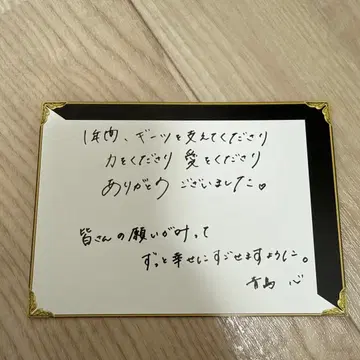 1年間、ギーツを支えてくださり
力をくださり 愛をくださり
ありがとうございました。
皆さんの願いが叶って
ずっと幸せにすごせますように。
青島 心